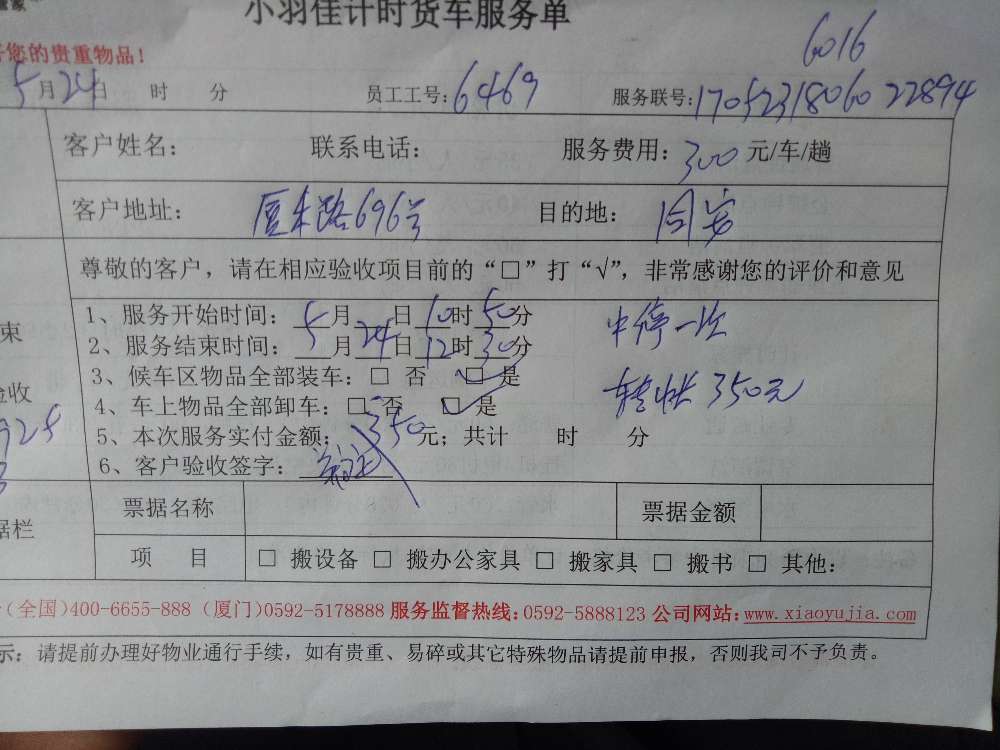 小羽佳计时货车服务单
您的贵重物品!
6016
5月24日 时 分 员工工号:6469 服务联号:1705231806022894
客户姓名: 联系电话: 服务费用:300元/车/趟
客户地址: 厦禾路696号 目的地: 同安
尊敬的客户,请在相应验收项目前的“□”打“√”,非常感谢您的评价和意见
1、服务开始时间:5月24日10时50分 中停一次
2、服务结束时间: 月24日12时30分
束
3、候车区物品全部装车:□ 否 ☑ 是
验收
4、车上物品全部卸车:□ 否 ☑ 是 350元
5、本次服务实付金额:350元;共计 时 分
6、客户验收签字:
票据名称 票据金额
据栏
项 目 □ 搬设备 □ 搬办公家具 □ 搬家具 □ 搬书 □ 其他:
(全国)400-6655-888 (厦门)0592-5178888 服务监督热线:0592-5888123 公司网站:www.xiaoyujia.com
示:请提前办理好物业通行手续,如有贵重、易碎或其它特殊物品请提前申报,否则我司不予负责。